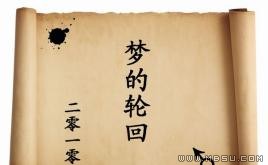 梦的轮回
二零一零
WWW.MBSU.COM